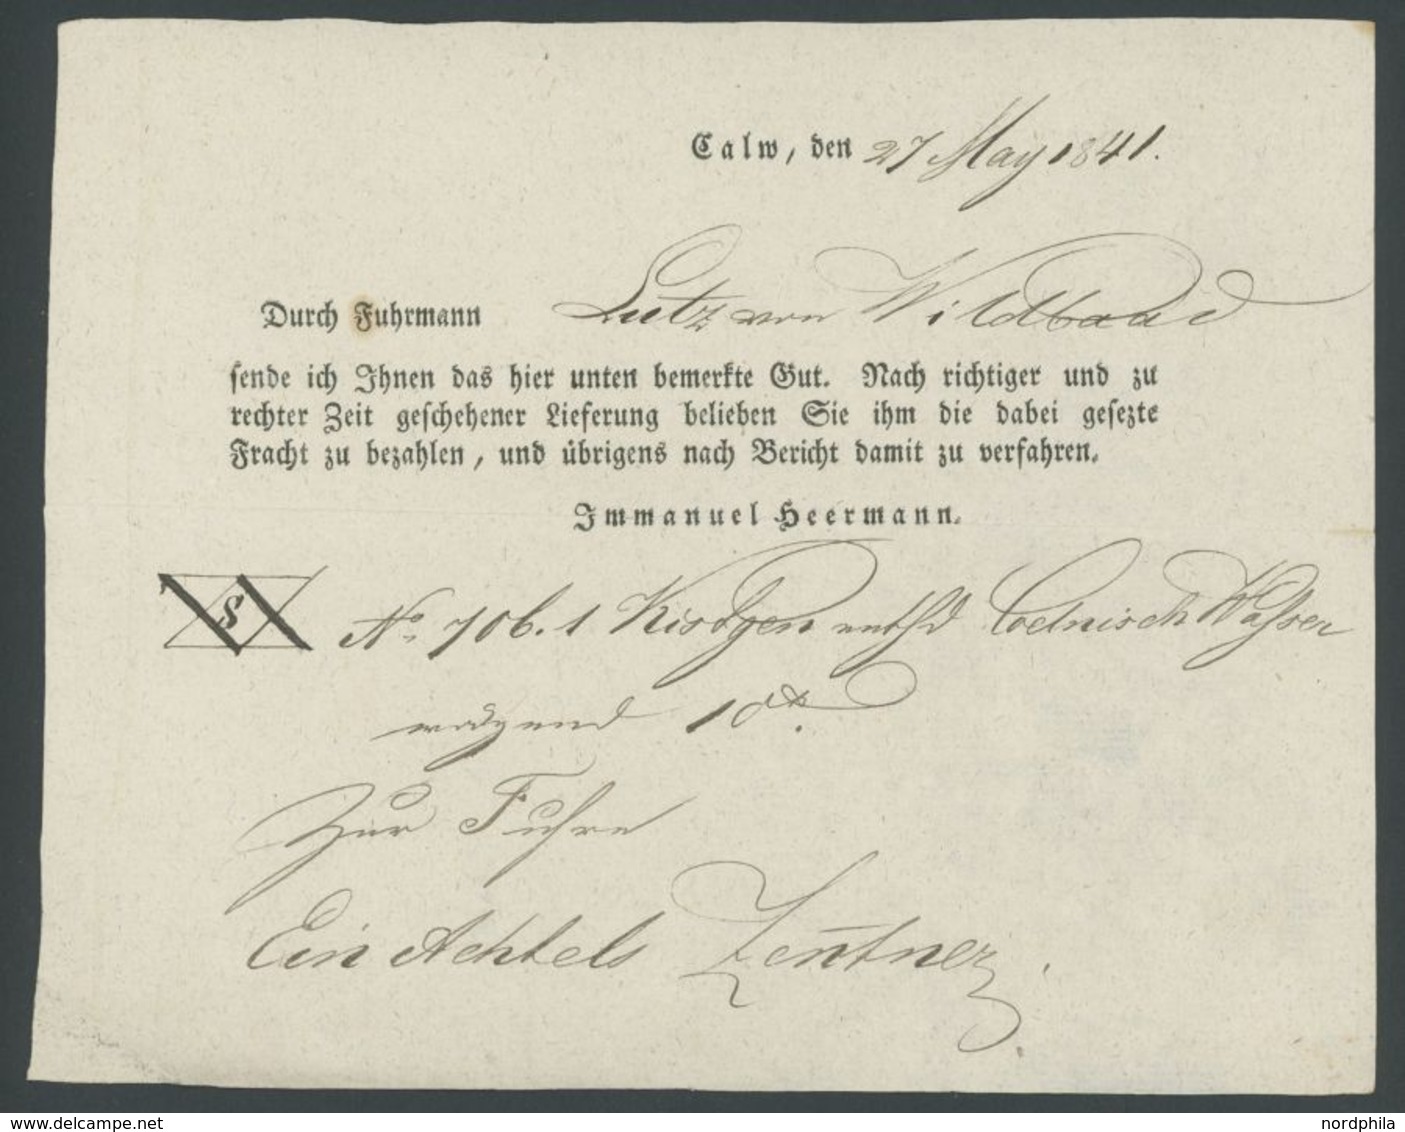 Calw, den 27 May 1841.
Durch Fuhrmann Lutz von Wildbaad
sende ich Ihnen das hier unten bemerkte Gut. Nach richtiger und zu
rechter Zeit geschehener Lieferung belieben Sie ihm die dabei gesezte
Fracht zu bezahlen, und übrigens nach Bericht damit zu verfahren.
Immanuel Heermann.
S No. 706. 1 Kistchen enthd Coelnisch Wasser
wägend 10
Zur Fuhre
Ein Achtels Zentner.
nordphila